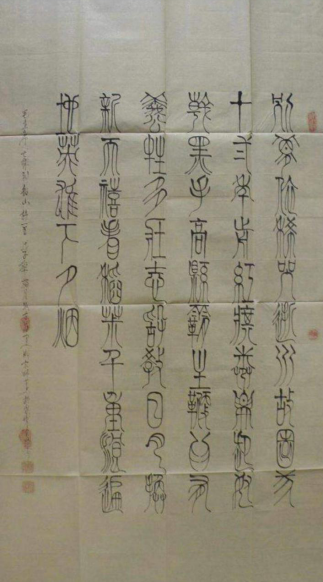 別夢依稀咒逝川故園三
十二年前紅旗卷起農奴
戟黑手高懸霸主鞭為有
犧牲多壯志敢教日月換
新天喜看稻菽千重浪遍
地英雄下夕煙